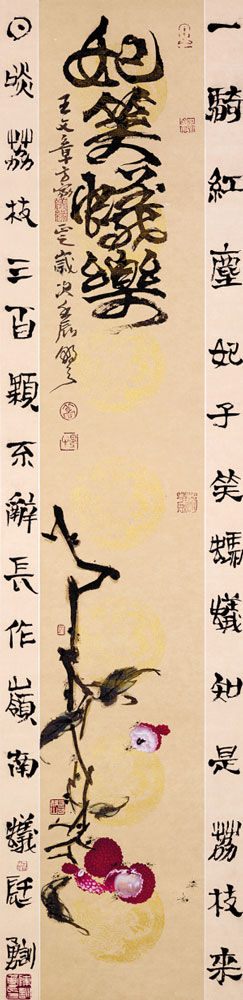 一騎紅塵妃子笑螞蟻知是茘枝来
妃笑蟻樂
王文章方家正歲次壬辰
日啖茘枝三百顆不辭長作嶺南蟻